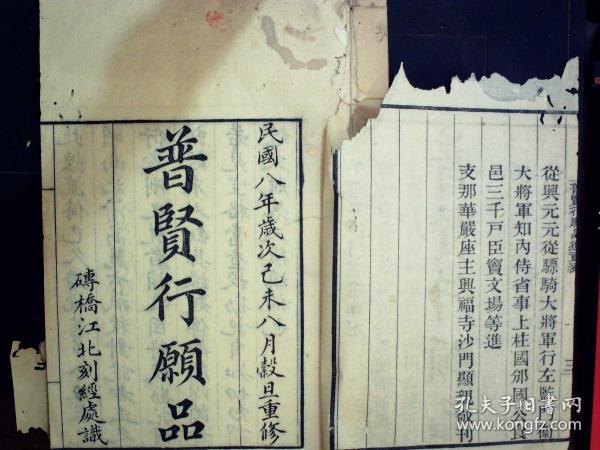 民國八年歲次己未八月穀旦重修
普賢行願品
磚橋江北刻經處識
從興元元從驃騎大將軍行左監門衛
大將軍知內侍省事上柱國邠國公食
邑三千戶臣竇文場等進
支那華嚴座主興福寺沙門顯親敬刊
三
孔夫子旧书网